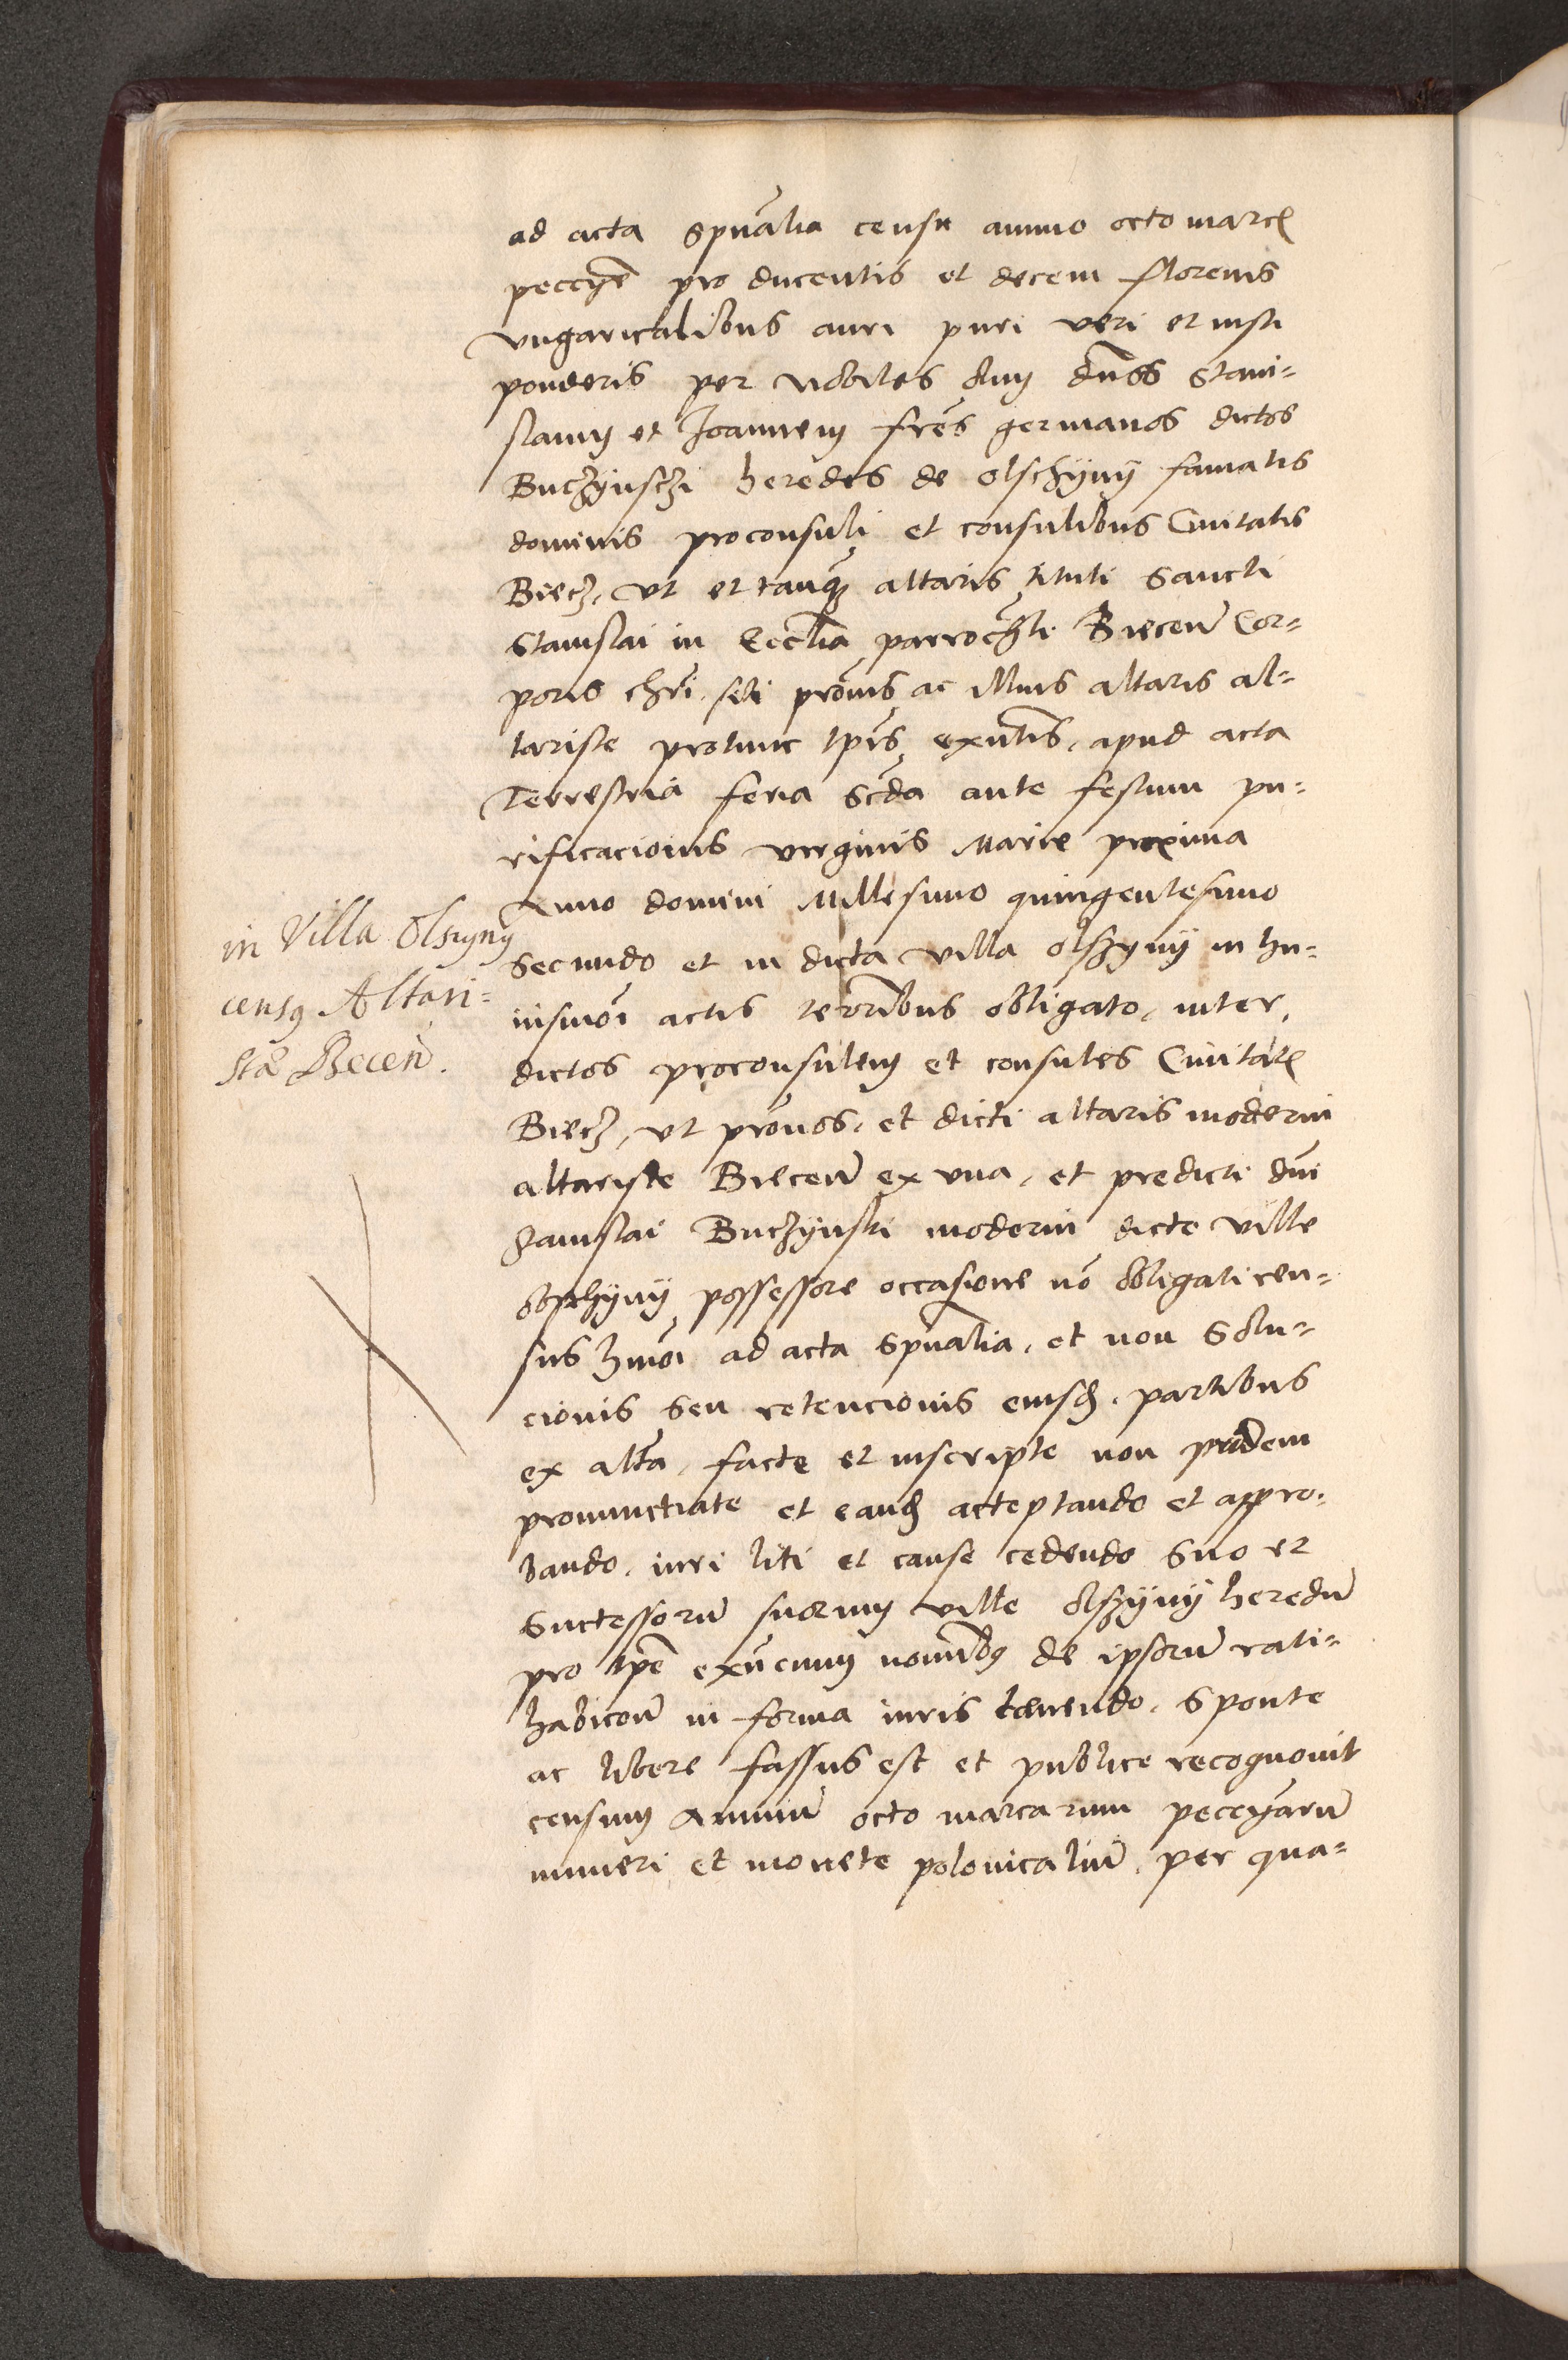 ad acta spũalia censu annuo octo marcℓ
peccyẽ pro ducentis et decem florenis
vngaricalibus auri puri veri et iusti
ponderis per nobiles olim dños Stani=
slaum et Joannem frẽs germanos dictos
Buczÿnsczi heredes de olschÿnÿ famatis
dominis proconsuli et consulibus Ciuitatis
Biecz, vt et tanq̃ altaris tituli Sancti
Stanislai in Ecclĩa parrochĩali Biecen̄ Cor=
poris chrĩ siti prõnis ac illius altaris al=
tariste protunc tp̃is exñtis, apud acta
Terrestria feria Sc̃da ante festum pu=
rificacionis virginis Marie proxima
Anno domini Millesimo quingentesimo
Secundo et in dicta villa olszynÿ in hu=
iusmõi actis terrr̃ibus obligato, inter
dictos proconsulem et consules Ciuitatℓ
Biecz, vt prõnos, et dicti altaris moderni
altariste Biecen̄ ex vna, et predicti dñi
Stanislai Buczÿnski moderni dicte ville
olschÿnÿ possessore occasione nõ obligati cen=
sus hmõi ad acta Spũalia, et non Solu=
cionis seu retencionis eiusd, partibus
ex altã, facte et inscripte non pridem
pronunctiate et eand acceptando et appro=
bando, iuri liti et cause cedendo suo et
Successorū suorum ville olszÿnÿ heredū
pro tp̃e exñcium noĩbꝯ de ipsorū rati=
habicoñ in forma iuris cauendo, Sponte
ac libere fassus est et publice recognouit
censum Annuū octo marcarum peccyãrū
numeri et monete polonicaliū, per qua=
in Villa Olszyny
censꝯ Altari=
stæ Becen̄.